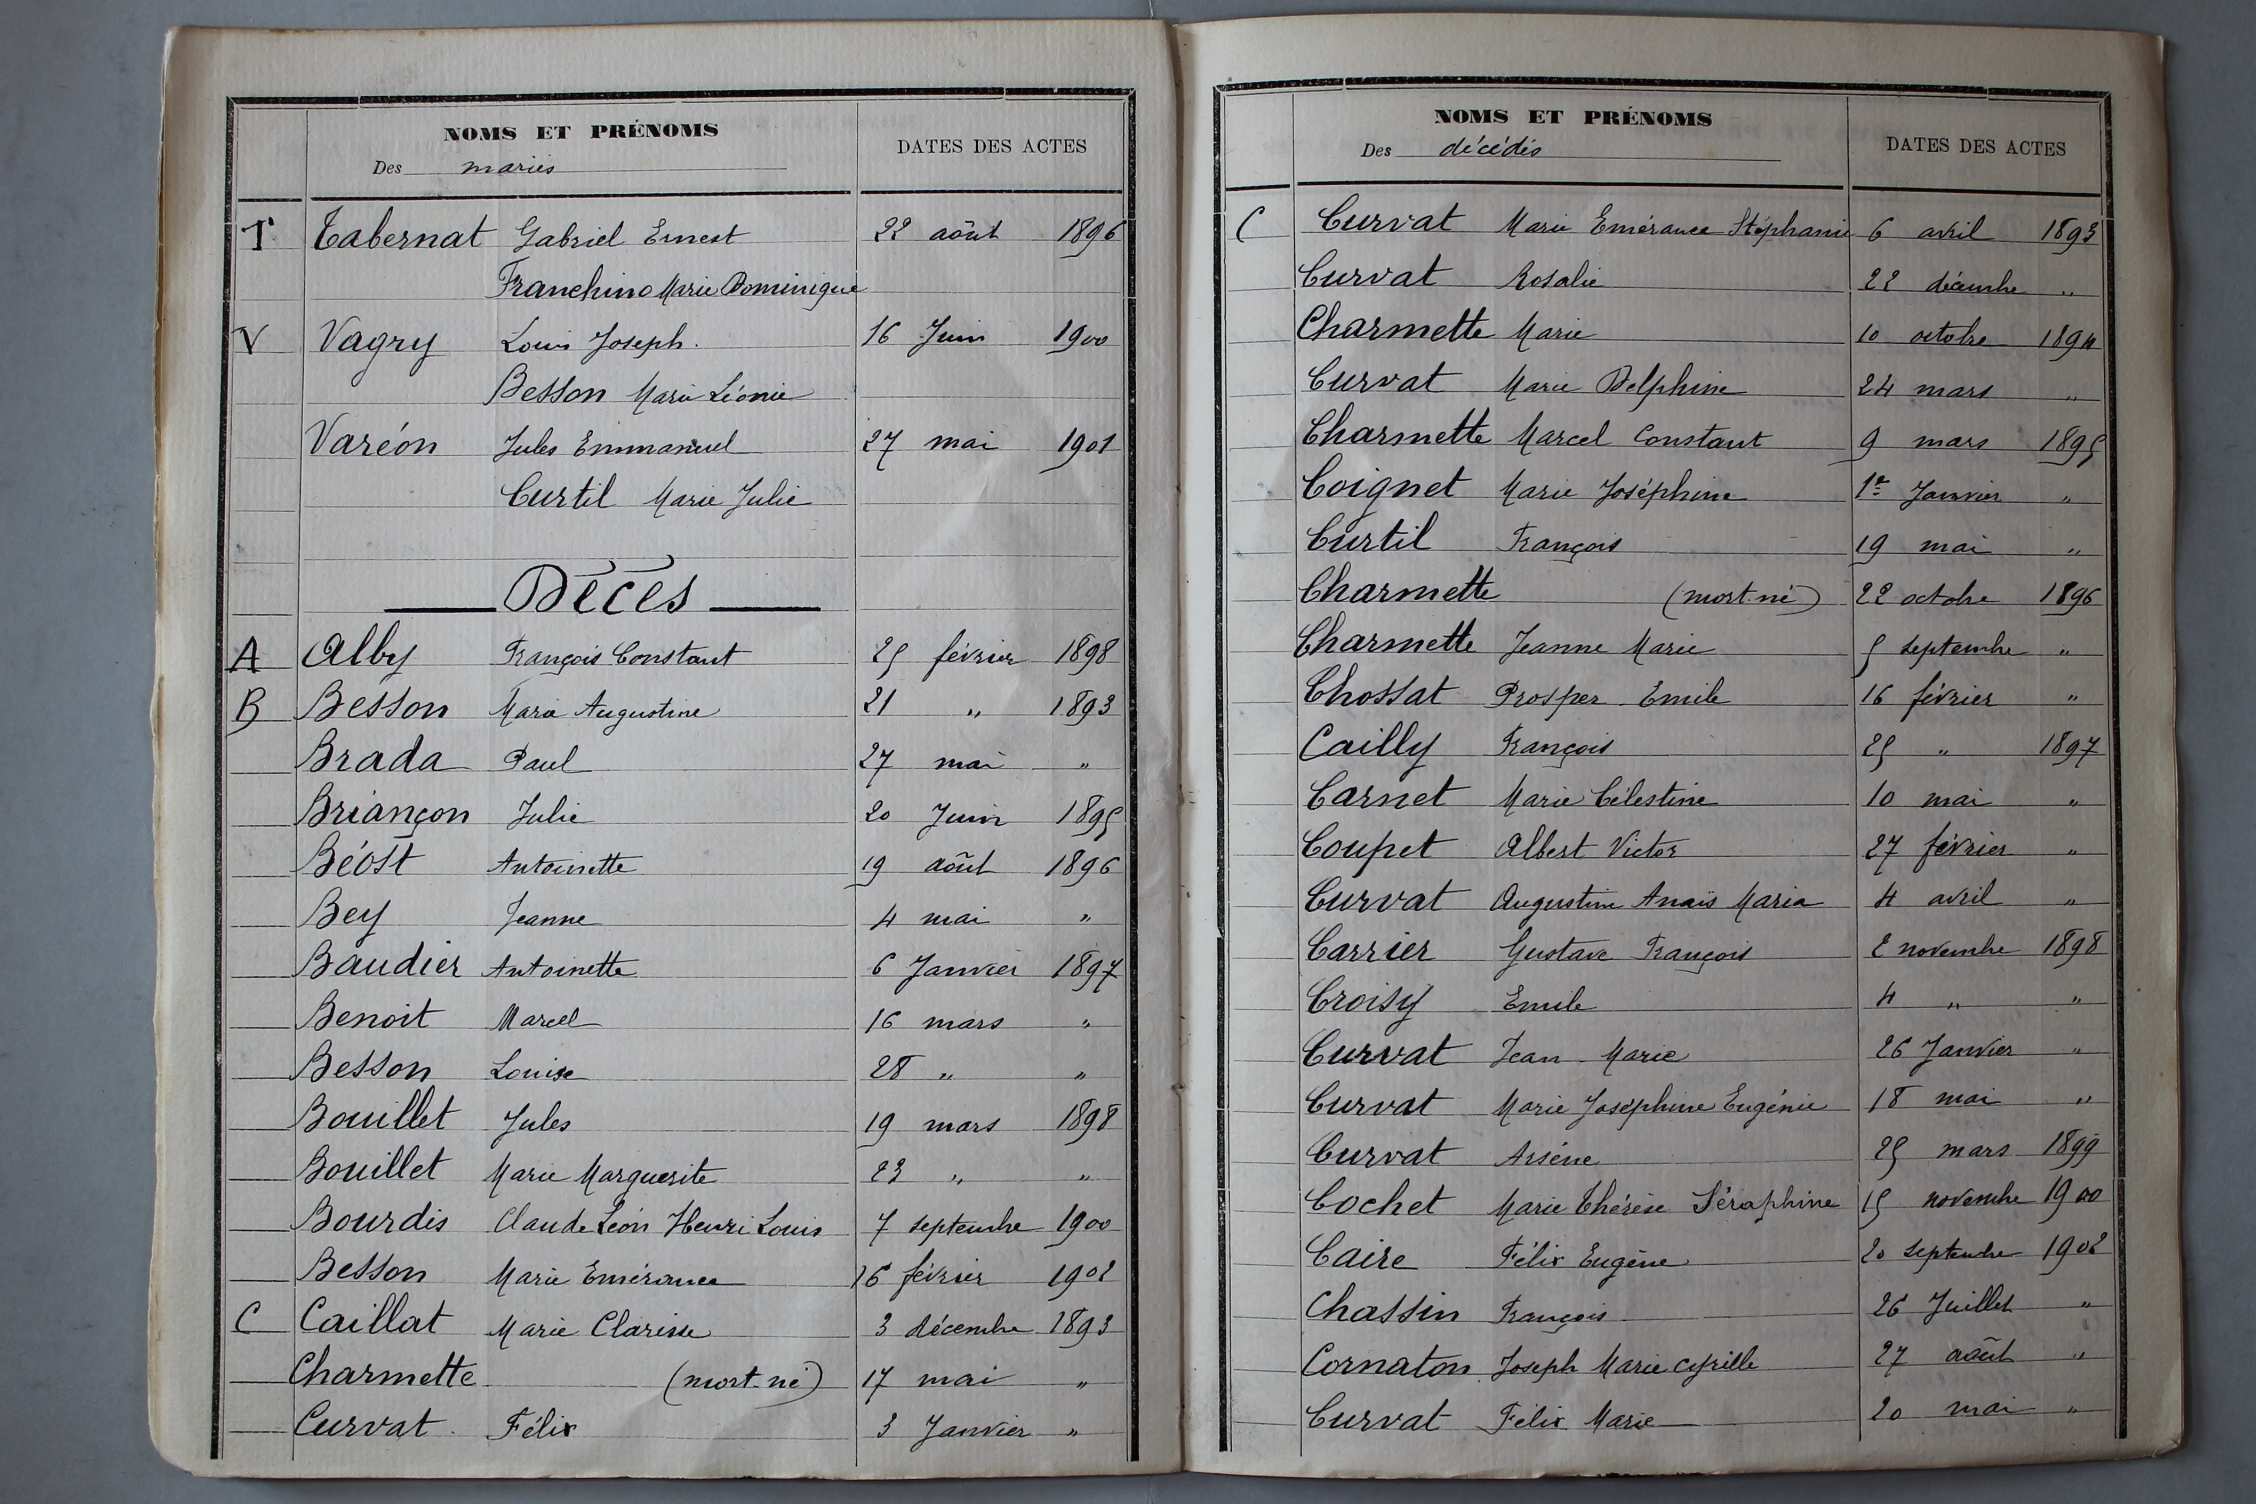 NOMS ET PRÉNOMS
Des mariés
DATES DES ACTES
T Tabernat Gabriel Ernest 22 août 1896
Franchino Marie Dominique
V Vagry Louis Joseph. 16 Juin 1900
Besson Marie Léonie
Varéon Jules Emmanuel 27 mai 1901
Curtil Marie Julie
Décès
A Alby François Constant 25 février 1898
B Besson Marie Augustine 21 " 1893
Brada Paul 27 mai "
Briançon Julie 20 Juin 1895
Béost Antoinette 19 août 1896
Bey Jeanne 4 mai "
Baudier Antoinette 6 Janvier 1897
Benoit Marcel 16 mars "
Besson Louise 28 " "
Bouillet Jules 19 mars 1898
Bouillet Marie Marguerite 23 " "
Bourdis Claude Léon Henri Louis 7 septembre 1900
Besson Marie Emérance 26 février 1902
C Caillat Marie Clarisse 3 décembre 1893
Charmette (mort-né) 17 mai "
Curvat Félix 3 Janvier "
NOMS ET PRÉNOMS
Des décédés
DATES DES ACTES
C Curvat Marie Emérance Stéphanie 6 avril 1893
Curvat Rosalie 22 décembre "
Charmette Marie 10 octobre 1894
Curvat Marie Delphine 24 mars "
Charmette Marcel Constant 9 mars 1895
Coignet Marie Joséphine 1er Janvier "
Curtil François 19 mai "
Charmette (mort-né) 22 octobre 1896
Charmette Jeanne Marie 5 septembre "
Chossat Prosper Emile 16 février "
Cailly François 25 " 1897
Carnet Marie Célestine 10 mai "
Coupet Albert Victor 27 février "
Curvat Augustine Anaïs Maria 4 avril "
Carrier Gustave François 2 novembre 1898
Croisy Emile 4 " "
Curvat Jean-Marie 26 Janvier "
Curvat Marie Joséphine Eugénie 18 mai "
Curvat Arsène 25 mars 1899
Cochet Marie Thérèse Séraphine 15 novembre 1900
Caire Félix Eugène 20 septembre 1902
Chassin François 26 Juillet "
Cornaton Joseph Marie Cyrille 27 août "
Curvat Félix Marie 20 mai "